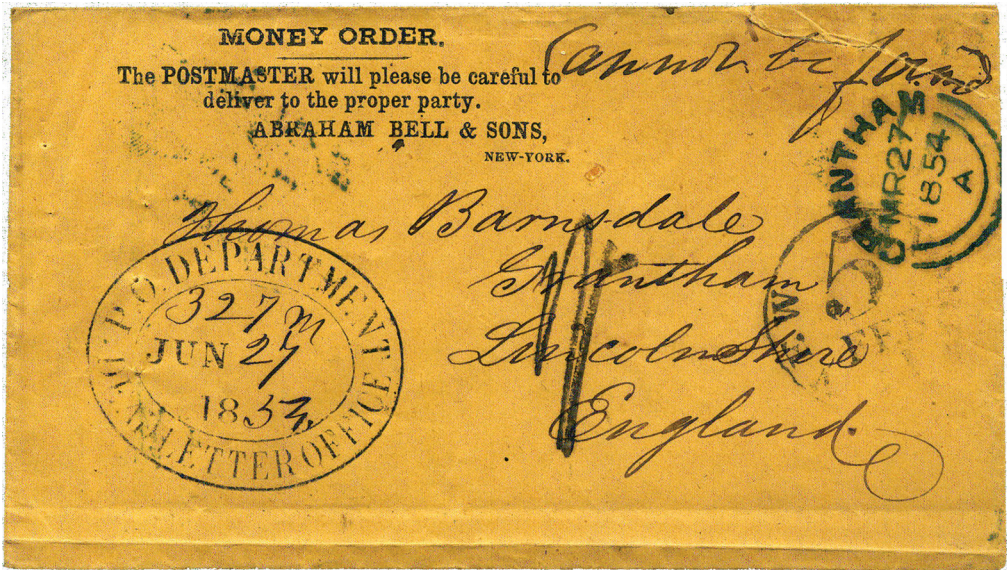 MONEY ORDER.
The POSTMASTER will please be careful to
deliver to the proper party.
ABRAHAM BELL & SONS,
NEW-YORK.
Cannot be found
GRANTHAM
MR 27
1854
A
Thomas Barnsdale
Grantham
Lincolnshire
England
P.O. DEPARTMENT
327 m
JUN 27
185
DEAD LETTER OFFICE
N.W
5